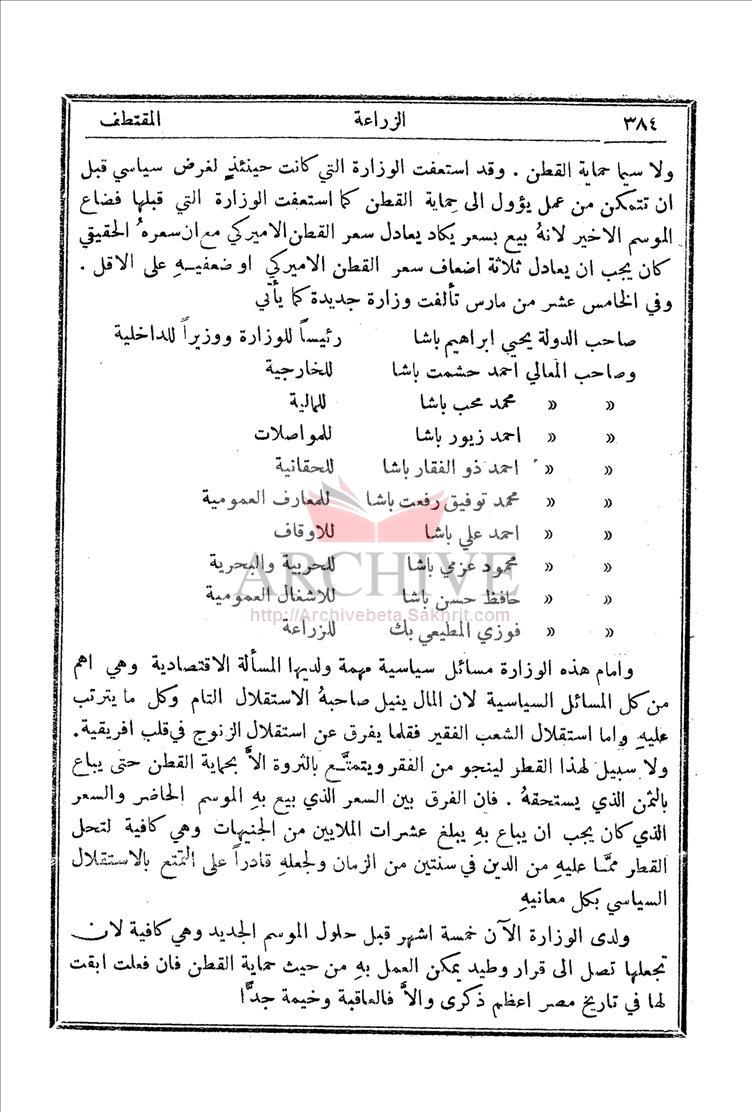 ٣٨٤ الزراعة المقتطف
ولا سيما حماية القطن . وقد استعفت الوزارة التي كانت حينئذٍ لغرض سياسي قبل
ان تتمكن من عمل يؤول الى حماية القطن كما استعفت الوزارة التي قبلها فضاع
الموسم الاخير لانهُ بيع بسعر يكاد يعادل سعر القطن الاميركي مع ان سعرهُ الحقيقي
كان يجب ان يعادل ثلاثة اضعاف سعر القطن الاميركي او ضعفيـهِ على الاقل .
وفي الخامس عشر من مارس تألفت وزارة جديدة كما يأتي
صاحب الدولة يحيى ابراهيم باشا رئيساً للوزارة ووزيراً للداخلية
وصاحب المعالي احمد حشمت باشا للخارجية
« « محمد محب باشا للمالية
« « احمد زيور باشا للمواصلات
« « احمد ذو الفقار باشا للحقانية
« « محمد توفيق رفعت باشا للمعارف العمومية
« « احمد علي باشا للاوقاف
« « محمود عزمي باشا للحربية والبحرية
« « حافظ حسن باشا للاشغال العمومية
« « فوزي المطيعي بك للزراعة
ARCHIVE
http://Archivebeta.Sakhrit.com
وامام هذه الوزارة مسائل سياسية مهمة ولديها المسألة الاقتصادية وهي اهم
من كل المسائل السياسية لان المال ينيل صاحبهُ الاستقلال التام وكل ما يترتب
عليهِ واما استقلال الشعب الفقير فقلما يفرق عن استقلال الزنوج في قلب افريقية.
ولا سبيل لهذا القطر لينجو من الفقر ويتمتَّع بالثروة الاَّ بحماية القطن حتى يباع
بالثمن الذي يستحقهُ . فان الفرق بين السعر الذي بيع بهِ الموسم الحاضر والسعر
الذي كان يجب ان يباع بهِ يبلغ عشرات الملايين من الجنيهات وهي كافية لتحل
القطر ممَّا عليهِ من الدين في سنتين من الزمان ولجعلهِ قادراً على التمتع بالاستقلال
السياسي بكل معانيهِ
ولدى الوزارة الآن خمسة اشهر قبل حلول الموسم الجديد وهي كافية لان
تجعلها تصل الى قرار وطيد يمكن العمل بهِ من حيث حماية القطن فان فعلت ابقت
لها في تاريخ مصر اعظم ذكرى والاَّ فالعاقبة وخيمة جدًّا